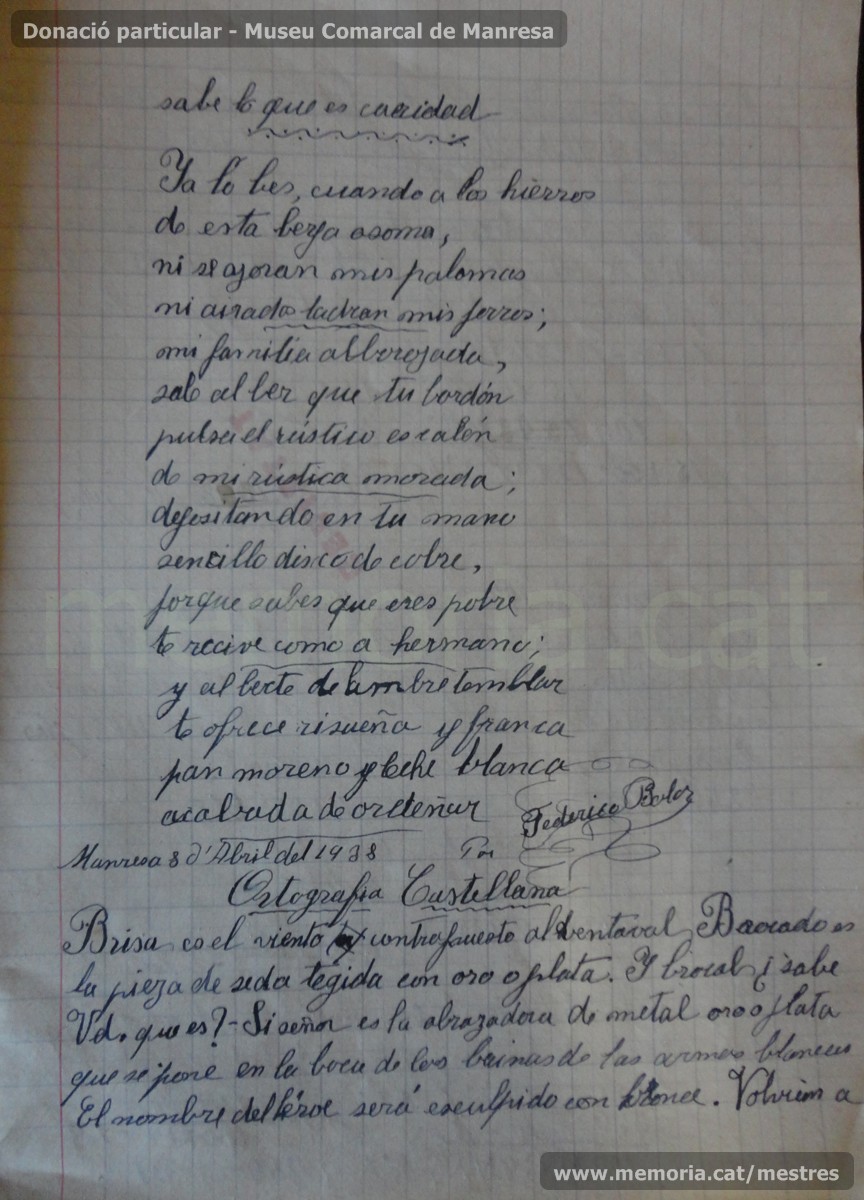 Donació particular - Museu Comarcal de Manresa
sabe lo que es caridad
Ya lo bes, cuando a los hierros
de esta berja asoma,
ni se azoran mis palomas
ni airados ladran mis perros;
mi familia alborozada,
sale al ber que tu bordón
pulsa el rústico escalón
de mi rústica morada;
depositando en tu mano
sencillo disco de cobre,
porque sabes que eres pobre
te recive como a hermano;
y al berte de ambre temblar
te ofrece risueña y franca
pan moreno y leche blanca
acabada de ordeñar
Manresa 8 d'Abril del 1938 Por Federico Balor
Ortografia Castellana
Brisa es el viento contrapuesto al ventaval, Baocado es
la pieza de seda tegida con oro o plata. Y brocal ¿sabe
Vd. que es? - Si señor es la abrazadora de metal oro o plata
que se pone en la boca de las bainas de las armas blancas
El nombre del héroe será esculpido con bronce. Volvim a
www.memoria.cat/mestres